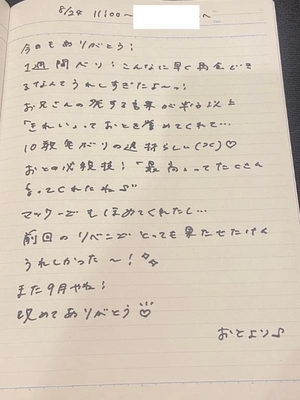 8/24 11:00〜 〜
今日もありがとう!
1週間ぶり!こんなに早く再会でき
るなんてうれしすぎたよ〜っ!
お兄さんの発する言葉が
「きれい」っておとを誉めてくれて…
10数発ぶりの
おとの必殺技!「最高」ってたくさん
言ってくれたね♪
マックーでもほめてくれたし…
前回のリベンジとっても果たせたけん
うれしかった〜!
また9月やね!
改めてありがとう♡
おとより♪